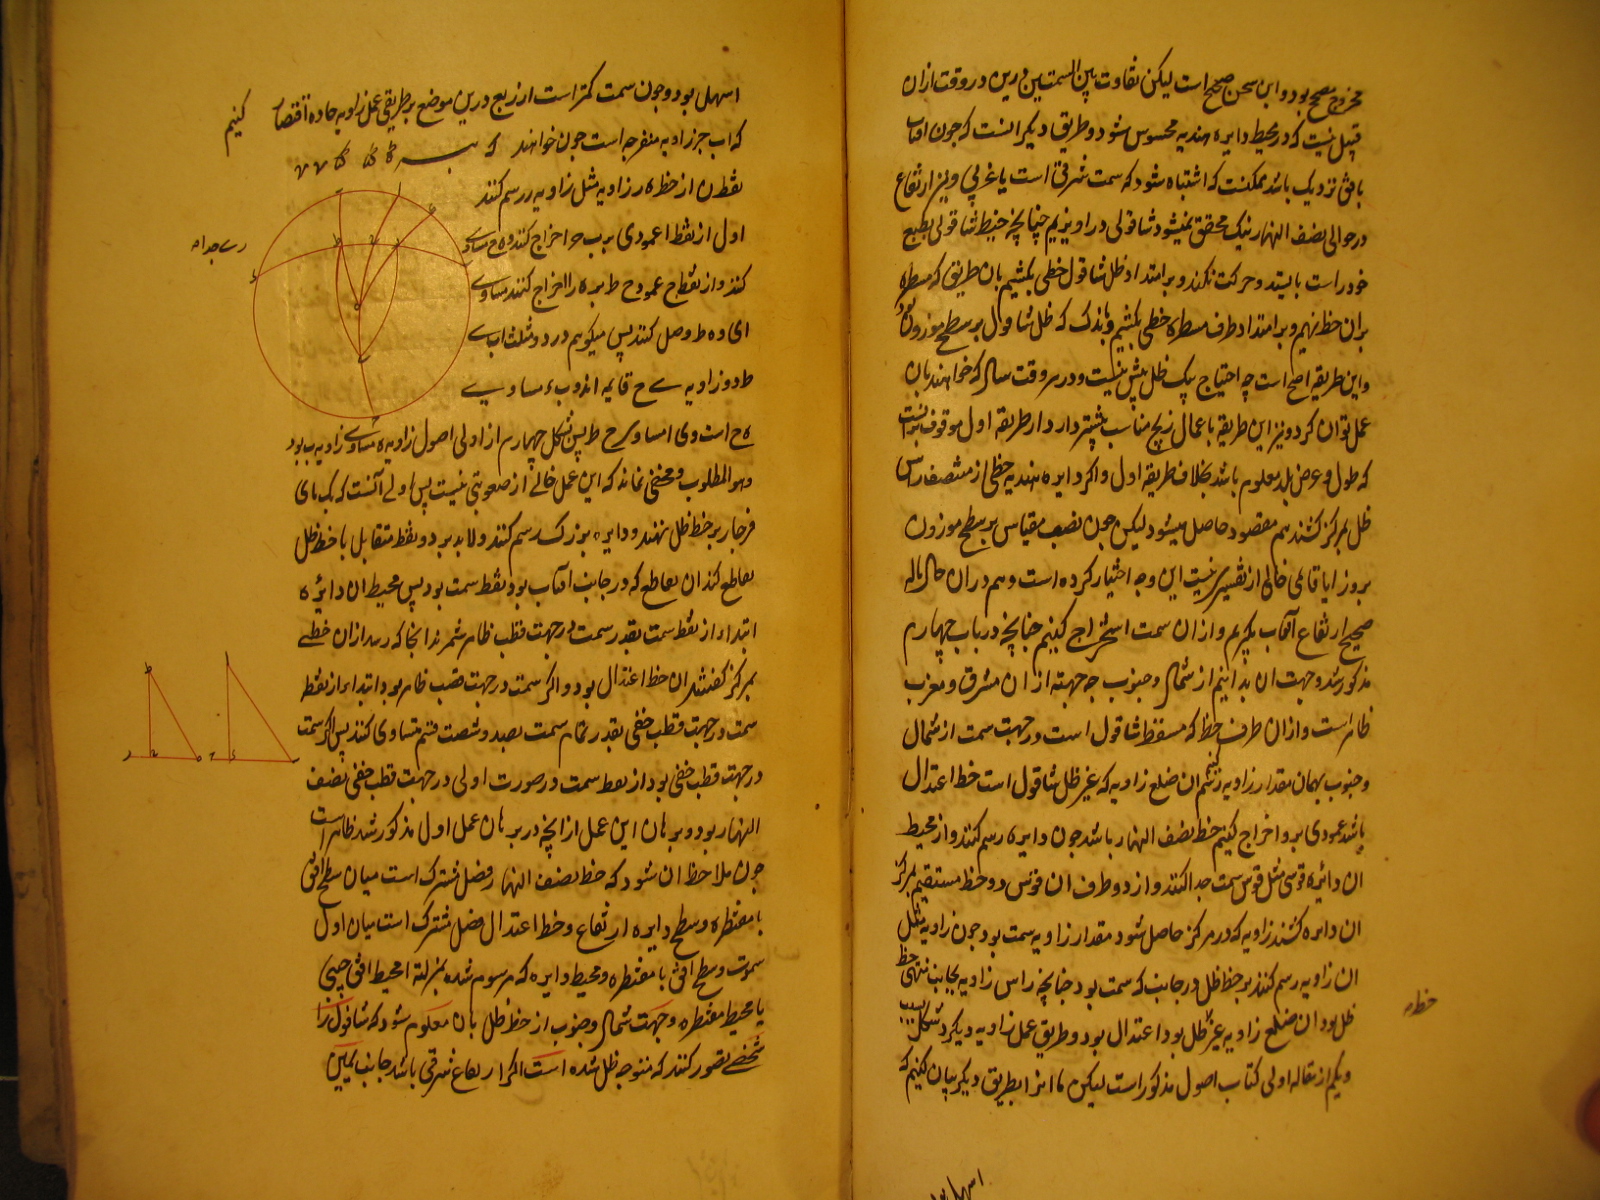 مخروج صحیح بود و این سخن صحیح است لیکن تفاوت بین السمتین درین دو وقت ازان
قبیل نیست که در محیط دایره هندیه محسوس شود و طریق دیگر انست که چون افتاب
بافق نزدیک باشد ممکنست که اشتباه شود که سمت شرقی است یا غربی و نیز ارتفاع
در حوالی نصف النهار نیک محقق نمیشود شاقولی در اویزیم چنانچه خیط شاقولی بطبع
خود راست بایستد و حرکت نکند و بر امتداد ظل شاقول خطی بکشیم بان طریق که مسطره
بران خط نهیم و بر امتداد طرف مسطره خطی بکشیم و باندک که ظل شاقول بر سطح موزون بود
و این طریقه اصح است چه احتیاج بیک ظل بیش نیست و در هر وقت سال که خواهند بان
عمل توان کرد و نیز این طریقه باعمال زیج مناسب بیشتر دارد از طریقه اول موقوف برانست
که طول و عرض بلد معلوم باشد بخلاف طریقه اول و اکر دایره هندیه خطی از منتصف راس
ظل بمرکز کشند هم مقصود حاصل میشود لیکن چون نصب مقیاس بر سطح موزون
خالی از نیست این وجه اختیار کرده است و هم دران حال
صحیح ارتفاع آفتاب بگیریم و ازان سمت استخراج کنیم چنانچه در باب چهارم
مذکور شد و جهت ان بدانیم از شمال و جنوب چه جهته از ان مشرق و مغرب
ظاهر است و ازان طرف خط که مسقط شاقول است در جهت سمت از شمال
و جنوب بهمان مقدار زاویه رسم کنیم ان ضلع زاویه که غیر ظل شاقول است خط اعتدال
باشد عمودی برو اخراج کنیم خط نصف النهار باشد چون دایره رسم کنند و از محیط
ان دائره قوسی مثل قوس سمت جدا کنند و از دو طرف ان قوس دو خط مستقیم بمرکز
ان دایره کشند زاویه که در مرکز حاصل شود مقدار زاویه سمت بود چون زاویه مثل
ان زاویه رسم کنند بر خط ظل در جانب که سمت بود چنانچه راس زاویه بجانب منتهی خط
ظل بود ان ضلع زاویه غیر ظل بود اعتدال بود و طریق عمل زاویه دیگر در شکل بیست
و یکم از مقاله اولی کتاب اصول مذکور است لیکن ما انرا بطریق دیگر بیان کنیم که
خط
اسهل بود
اسهل بود و چون سمت کمتر است از ربع درین موضع بر طریق عمل زاویه حاده اقتصار کنیم
که اب جزاویه منفرجه است چون خواهند که
نقطه ه از خط ه ر زاویه مثل زاویه ر رسم کنند
اول از نقطه ا عمودی بر ب ج اخراج کنند و ه ح مساوی
کنند و از نقطه ح عمود ح ط بر ه ر اخراج کنند مساوی
ای و ه ط وصل کنند پس میکوییم در دو مثلث اب ی
ط دو زاویه ی ح قایمه اند و ب ی مساوی
ه ح است و ی ا مساوی ح ط پس بشکل چهارم از اولی اصول زاویه ه مساوی زاویه ب بود
وهو المطلوب و مخفی نماند که این عمل خالی از صعوبتی نیست پس اولی آنست که یک پای
فرجار بر خط ظل نهند و دایره بزرگ رسم کنند و لابد بر دو نقطه متقابل با خط ظل
تقاطع کند ان تقاطع که در جانب آفتاب بود نقطه سمت بود پس محیط ان دایره
ابتداء از نقطه سمت بقدر سمت در جهت قطب ظاهر شمرند انجا که رسد ازان خطی
بمرکز کشند ان خط اعتدال بود و اکر سمت در جهت قطب ظاهر بود ابتداء از نقطه
سمت در جهت قطب خفی بقدر تمام سمت بصد و شصت قسم متساوی کنند پس اکر سمت
در جهت قطب خفی بود از نقطه سمت در صورت اولی در جهت قطب خفی نصف
النهار بود و برهان این عمل ازانچه در برهان عمل اول مذکور شد ظاهر است
چون ملاحظه ان شود که خط نصف النهار فصل مشترک است میان سطح افق
با مقنطره و سطح دایره ارتفاع و خط اعتدال فصل مشترک است میان اول
سموت و سطح افق با مقنطره و محیط دایره که مرسوم شده بمنزلته محیط افق حسی
یا محیط مقنطره و جهت شمال و جنوب از خط ظل بان معلوم شود که شاقول را
شخصی تصور کنند که متوجه ظل شده است اکر ارتفاع شرقی باشد جانب یمین